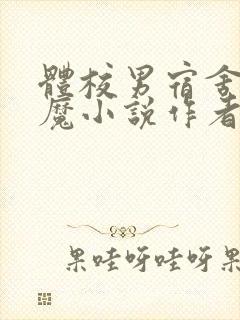 體校男宿舍
魔小說作者
果哇呀哇呀果